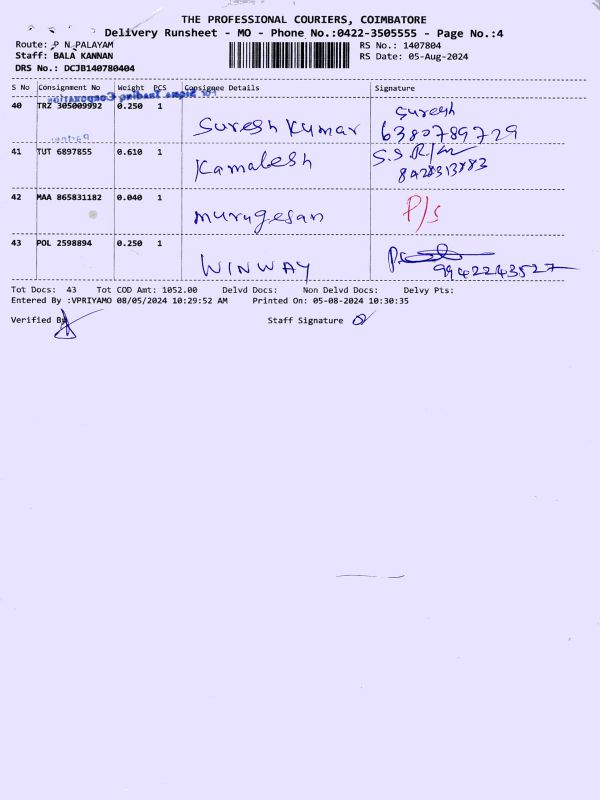 THE PROFESSIONAL COURIERS, COIMBATORE
Delivery Runsheet - MO - Phone No.:0422-3505555 - Page No.:4
Route: P N PALAYAM
RS No.: 1407804
Staff: BALA KANNAN
RS Date: 05-Aug-2024
DRS No.: DCJB140780404
S No Consignment No Weight PCS Consignee Details Signature
For Sigma Trading Corporation
40 TRZ 305009992 0.250 1 Suresh Kumar Suresh
6380789729
Partner
41 TUT 6897855 0.610 1 Kamalesh
8428313883
42 MAA 865831182 0.040 1 Murugesan P/s
43 POL 2598894 0.250 1 WINWAY
9942243527
Tot Docs: 43 Tot COD Amt: 1052.00 Delvd Docs: Non Delvd Docs: Delvy Pts:
Entered By :VPRIYAMO 08/05/2024 10:29:52 AM Printed On: 05-08-2024 10:30:35
Verified By Staff Signature